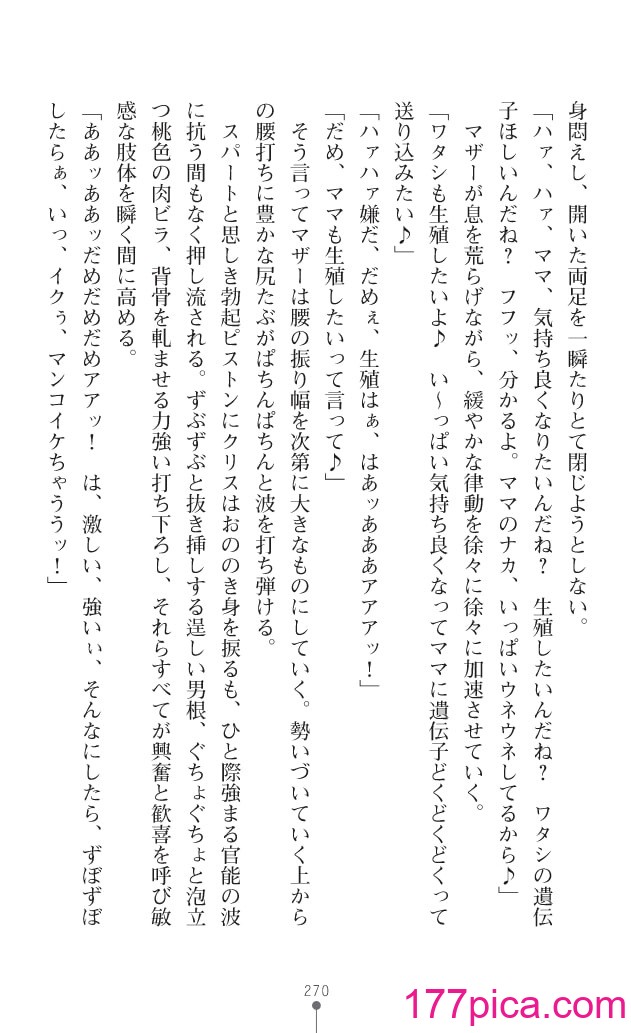 身悶えし、開いた両足を一瞬たりとて閉じようとしない。
「ハァ、ハァ、ママ、気持ち良くなりたいんだね？　生殖したいんだね？　ワタシの遺伝
子ほしいんだね？　フフッ、分かるよ。ママのナカ、いっぱいウネウネしてるから♪」
　マザーが息を荒らげながら、緩やかな律動を徐々に徐々に加速させていく。
「ワタシも生殖したいよ♪　い～っぱい気持ち良くなってママに遺伝子どくどくどくって
送り込みたい♪」
「ハァハァ嫌だ、だめぇ、生殖はぁ、はあッあああアアアッ！」
「だめ、ママも生殖したいって言って♪」
　そう言ってマザーは腰の振り幅を次第に大きなものにしていく。勢いづいていく上から
の腰打ちに豊かな尻たぶがぱちんぱちんと波を打ち弾ける。
　スパートと思しき勃起ピストンにクリスはおののき身を捩るも、ひと際強まる官能の波
に抗う間もなく押し流される。ずぶずぶと抜き挿しする逞しい男根、ぐちょぐちょと泡立
つ桃色の肉ビラ、背骨を軋ませる力強い打ち下ろし、それらすべてが興奮と歓喜を呼び敏
感な肢体を瞬く間に高める。
「ああッああッだめだめだめアアッ！　は、激しい、強いぃ、そんなにしたら、ずぼずぼ
したらぁ、いっ、イクぅ、マンコイケちゃううッ！」
270
177pica.com